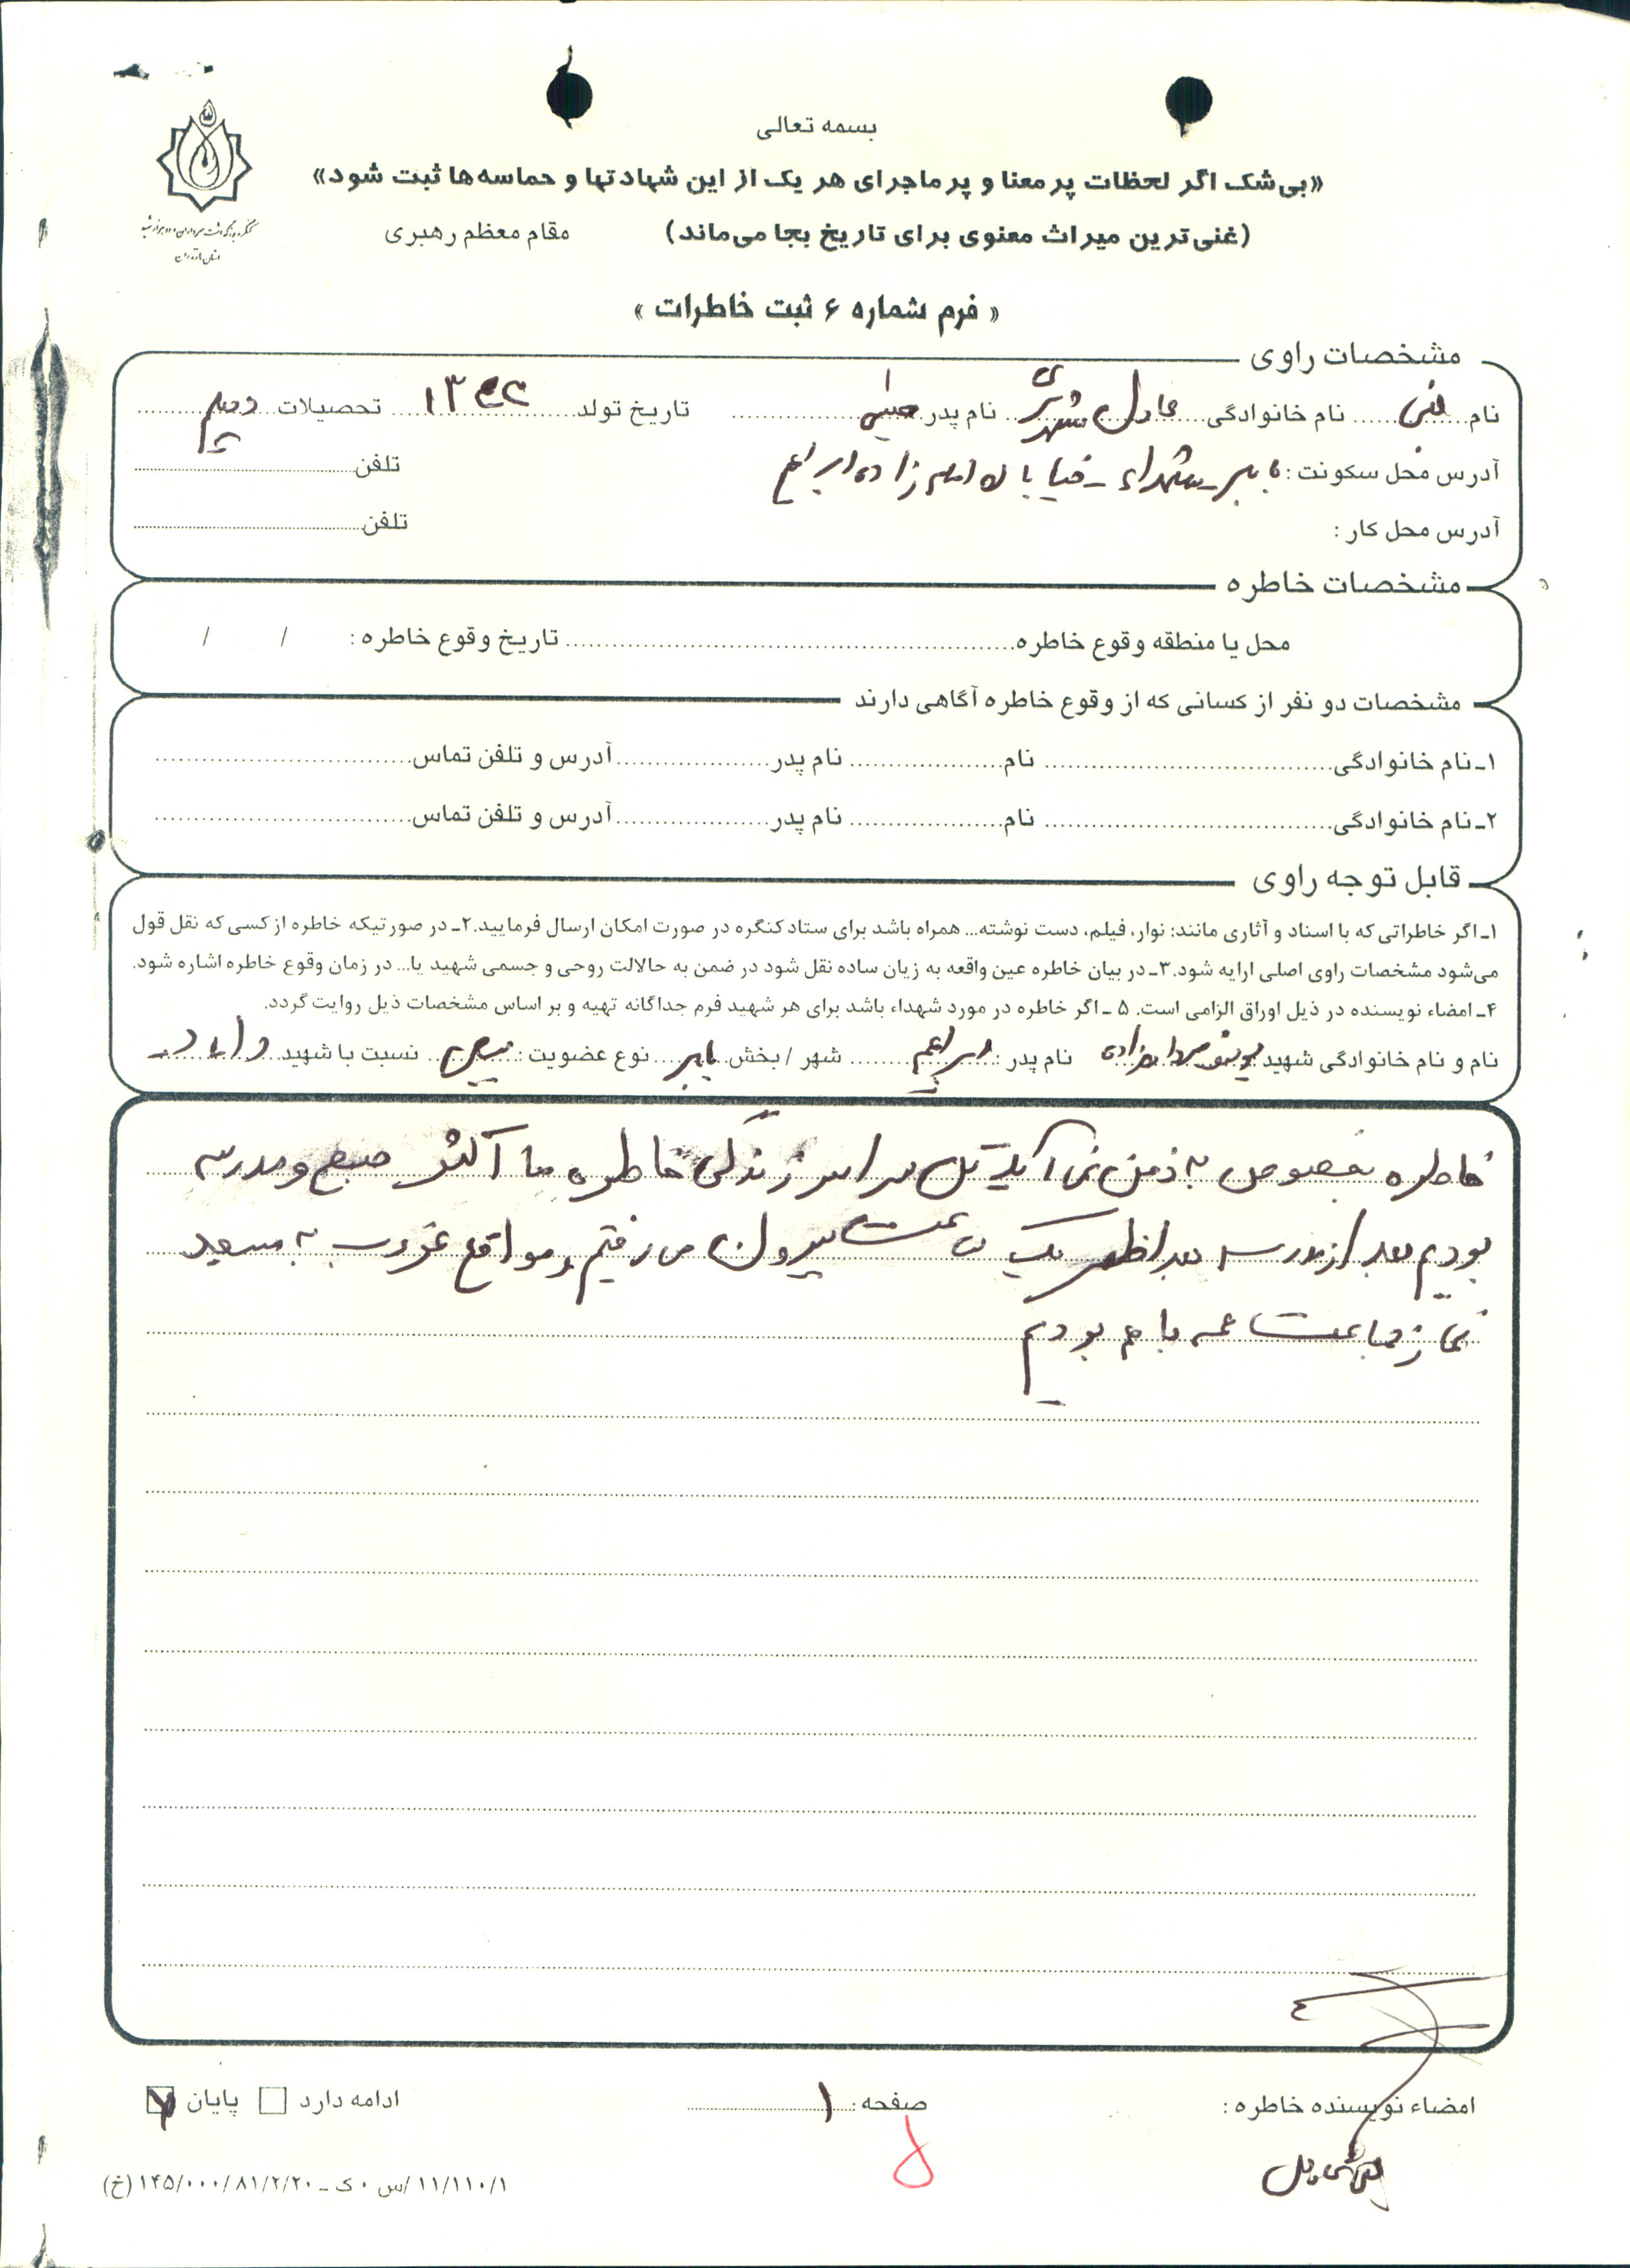 بسمه تعالی
«بی‌شک اگر لحظات پر معنا و پر ماجرای هر یک از این شهادتها و حماسه‌ها ثبت شود»
(غنی‌ترین میراث معنوی برای تاریخ بجا می‌ماند) مقام معظم رهبری
« فرم شماره ۶ ثبت خاطرات »
مشخصات راوی
نام نام خانوادگی عادل نام پدر تاریخ تولد ۱۳۴۲ تحصیلات دیپلم
آدرس محل سکونت : بابلسر - شهداء - خیابان امام زاده ابراهیم تلفن
آدرس محل کار : تلفن
مشخصات خاطره
محل یا منطقه وقوع خاطره تاریخ وقوع خاطره : / /
مشخصات دو نفر از کسانی که از وقوع خاطره آگاهی دارند
۱ـ نام خانوادگی نام نام پدر آدرس و تلفن تماس
۲ـ نام خانوادگی نام نام پدر آدرس و تلفن تماس
قابل توجه راوی
۱ـ اگر خاطراتی که با اسناد و آثاری مانند: نوار، فیلم، دست نوشته... همراه باشد برای ستاد کنگره در صورت امکان ارسال فرمایید.۲ـ در صورتیکه خاطره از کسی که نقل قول
می‌شود مشخصات راوی اصلی ارایه شود.۳ـ در بیان خاطره عین واقعه به زیان ساده نقل شود در ضمن به حالالت روحی و جسمی شهید یا... در زمان وقوع خاطره اشاره شود.
۴ـ امضاء نویسنده در ذیل اوراق الزامی است. ۵ ـ اگر خاطره در مورد شهداء باشد برای هر شهید فرم جداگانه تهیه و بر اساس مشخصات ذیل روایت گردد.
نام و نام خانوادگی شهید یوسف نام پدر : ابراهیم شهر / بخش بابلسر نوع عضویت : بسیجی نسبت با شهید
خاطره بخصوص به ذهن نمی آید سراسر زندگی خاطره ما اکثر صبح و مدرسه
بودیم بعد از مدرسه بعد از ظهر یک ساعت بیرون می رفتیم و مواقع غروب به مسجد
نماز جماعت همه با هم بودیم
امضاء نویسنده خاطره : صفحه : ۱ ادامه دارد پایان
۵
۱۱/۱۱۰/۱ /س ۰ ک ـ ۸۱/۲/۲۰ /۱۴۵/۰۰۰ (خ)